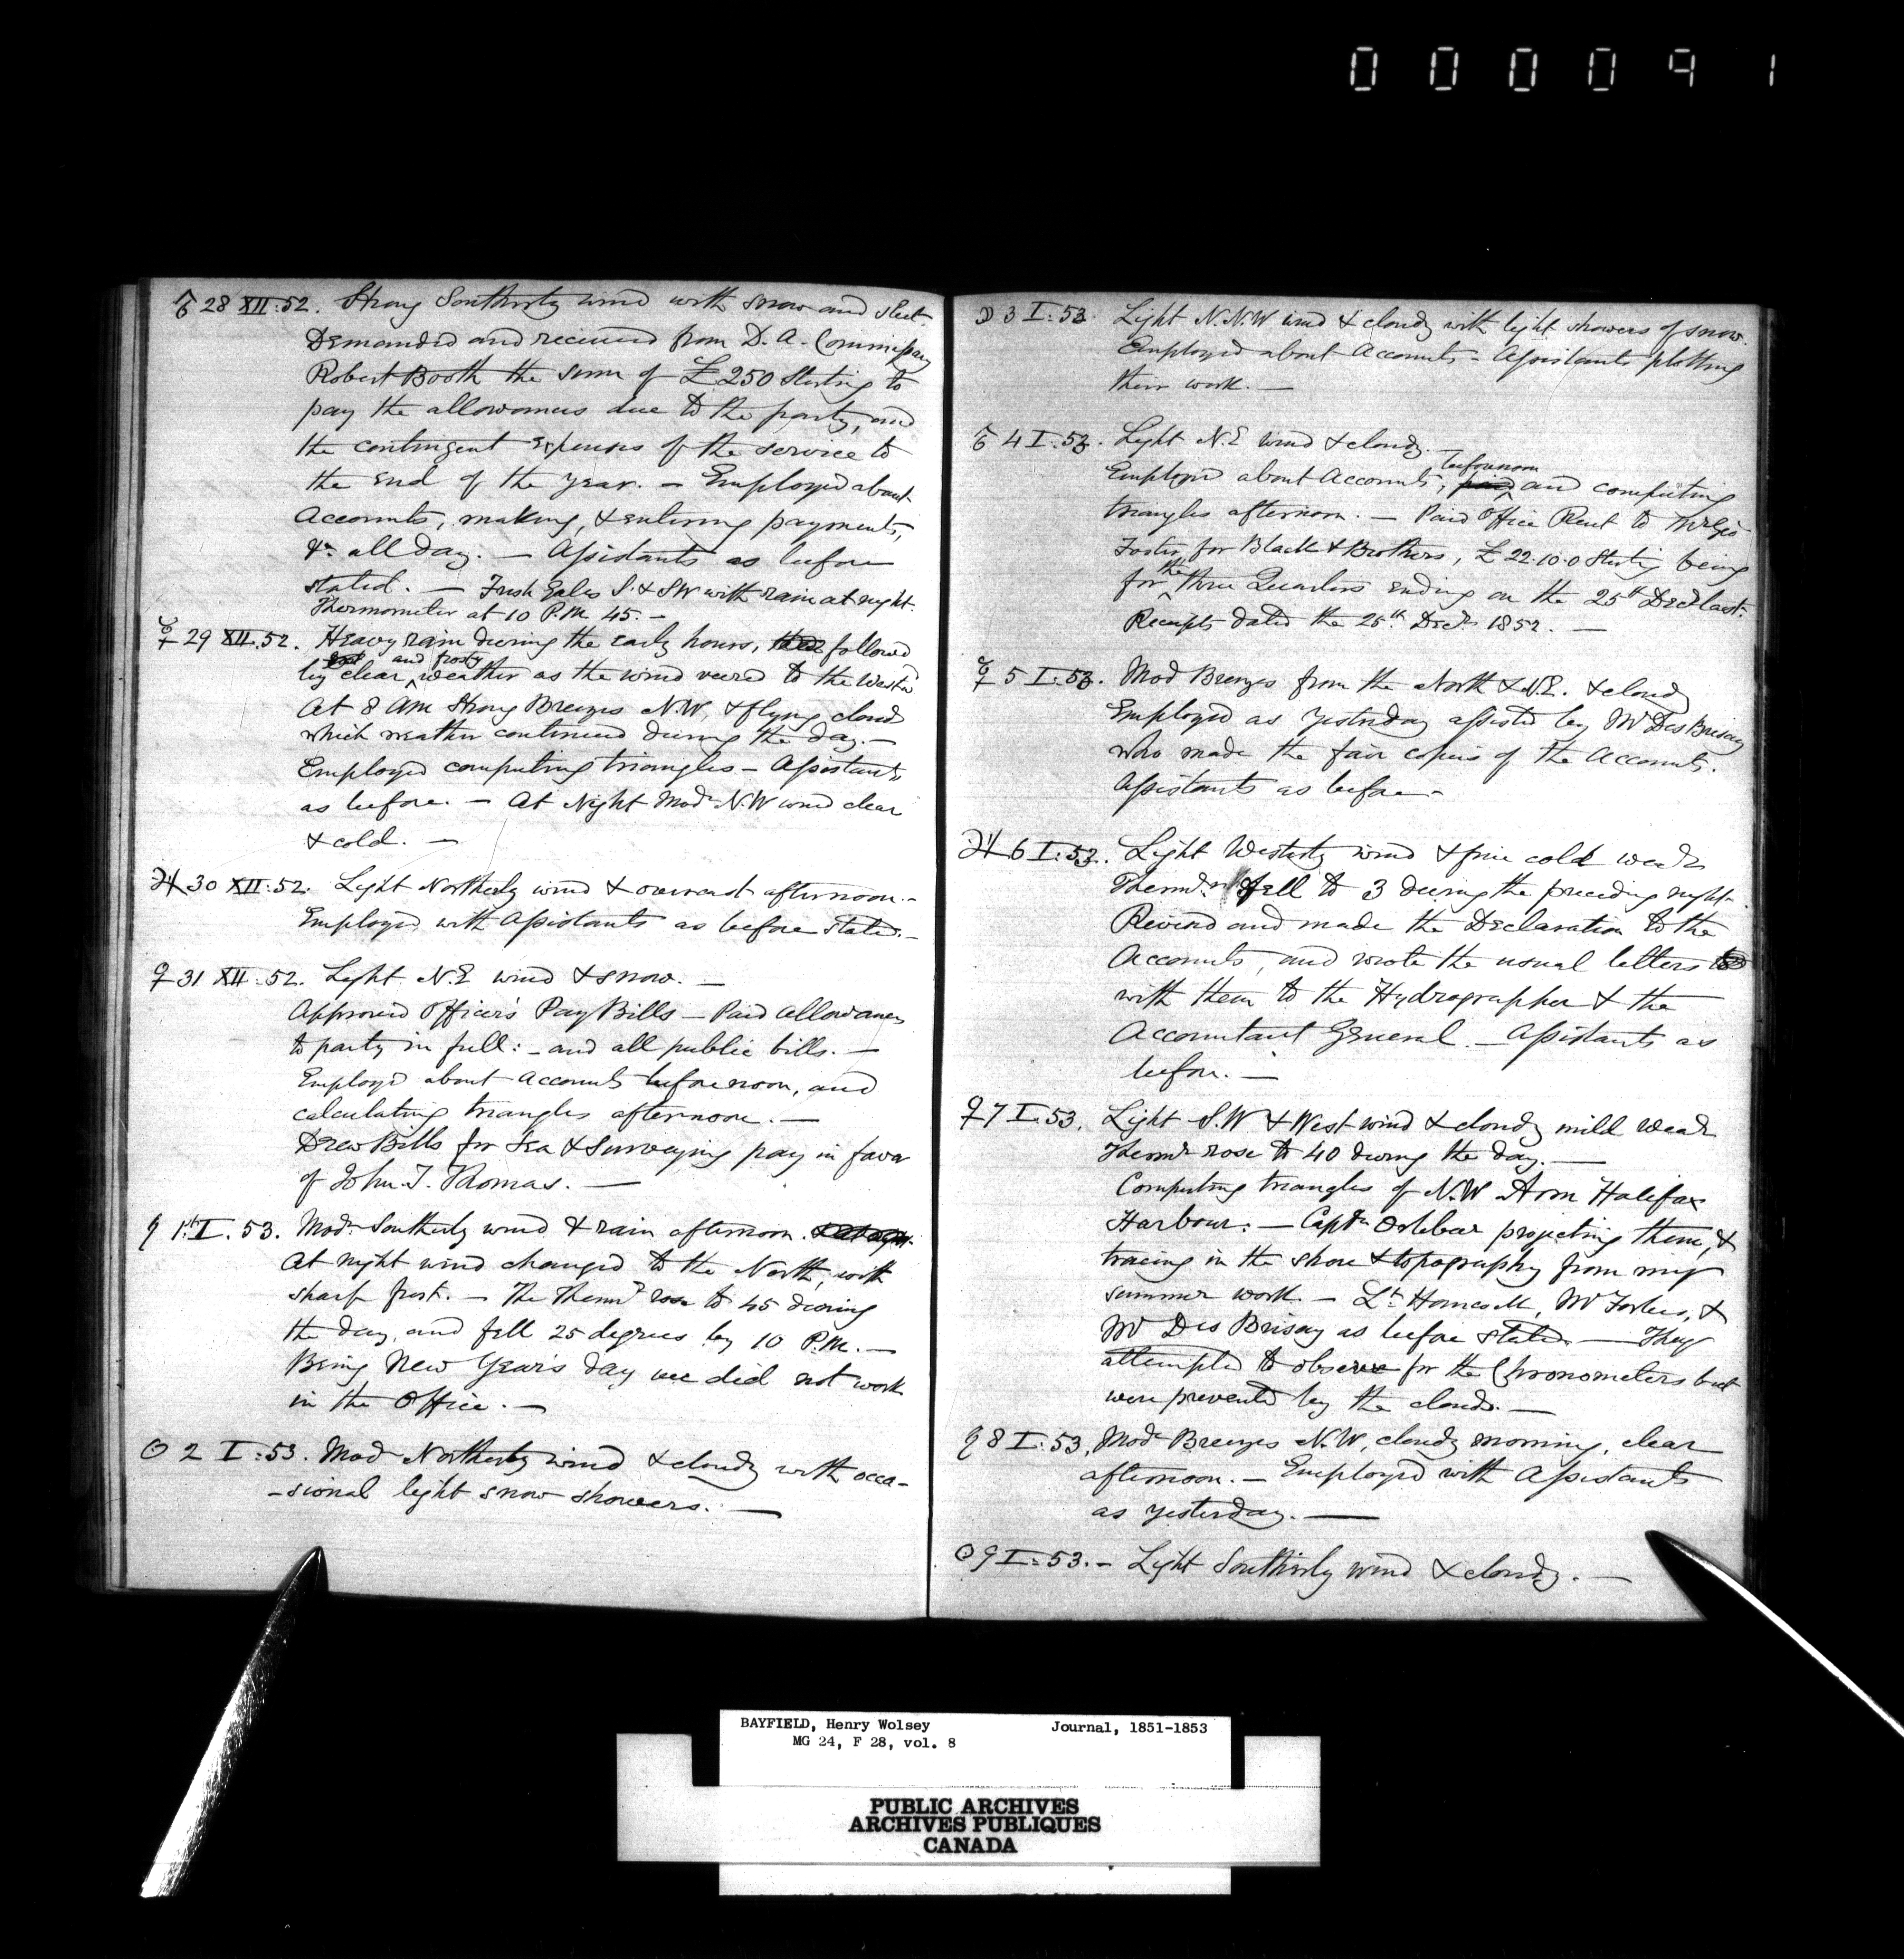 000091
♂ 28 XII:52. Strong Southerly wind with snow and sleet.
Demanded and received from D. A. Commissary
Robert Booth the sum of £250 Sterling to
pay the allowances due to the party, and
the contingent expenses of the service to
the end of the year. – Employed about
Accounts, making, & entering payments,
&c. all day. – Assistants as before
stated. – Fresh Gales S. & SW with rain at night.
Thermometer at 10 P.M. 45. –
☿ 29 XII.52. Heavy rain during the early hours, followed
by clear and frosty weather as the wind veered to the Westd
At 8 AM Strong Breezes N.W, & flying clouds
which weather continued during the day. –
Employed computing triangles – Assistants
as before. – At Night Modr N.W wind clear
& cold. –
♃ 30 XII:52. Light Northerly wind & overcast afternoon. –
Employed with Assistants as before stated. –
♀ 31 XII:52. Light N.E wind & snow. –
Approved Officer's Pay Bills – Paid allowances
to party in full: – and all public bills. –
Employd about Accounts before noon, and
calculating triangles afternoon. –
Drew Bills for Sea & Surveying pay in favor
of John T. Thomas. –
♄ 1st I. 53. Modr Southerly wind & rain afternoon.
At night wind changed to the North, with
sharp frost. – The Thermr rose to 45 during
the day, and fell 25 degrees by 10 P.M. –
Being New Year's day we did not work
in the Office. –
☉ 2 I:53. Modr Northerly wind & cloudy with occa-
-sional light snow showers. –
☽ 3 I:53. Light N.N.W wind & cloudy with light showers of snow.
Employed about Accounts – Assistants plotting
their work. –
♂ 4 I:53. Light N.E wind & cloudy. –
Employed about Accounts, before noon and computing
triangles afternoon. – Paid Office Rent to Mr Geo
Foster, for Black & Brothers, £22.10.0 Sterling being
for the three Quarters ending on the 25th Decr last.
Receipts dated the 25th Decr 1852. –
☿ 5 I:53. Mod Breezes from the North & N.E. & cloudy
Employed as yesterday assisted by Mr Des Brisay
who made the fair copies of the Accounts.
Assistants as before –
♃ 6 I:53. Light Westerly wind & fine cold weathr
Thermr fell to 3 during the preceding night –
Revised and made the Declaration to the
Accounts, and wrote the usual letters
with them to the Hydrographer & the
Accountant General. – Assistants as
before. –
♀ 7 I.53. Light S.W & West wind & cloudy mild weathr
Thermr rose to 40 during the day. –
Computing triangles of N.W Arm Halifax
Harbour. – Captn Orlebar projecting them, &
tracing in the shore & topography from my
summer work. – Lt Hancock, Mr Forbes, &
Mr Des Brisay as before stated. – They
attempted to observe for the Chronometers but
were prevented by the clouds. –
♄ 8 I:53, Modr Breezes N.W, cloudy morning, clear
afternoon. – Employed with Assistants
as yesterday. –
☉ 9 I:53. – Light Southerly wind & cloudy. –
BAYFIELD, Henry Wolsey Journal, 1851-1853
MG 24, F 28, vol. 8
PUBLIC ARCHIVES
ARCHIVES PUBLIQUES
CANADA